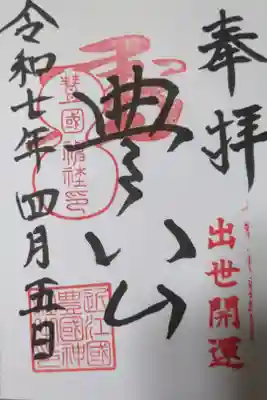 奉拝
出世開運
豐公
豐國
神社印
近江國
豊國神
令和七年四月五日